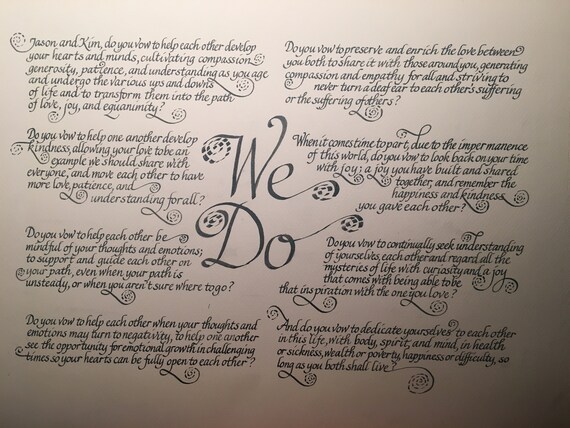 Jason and Kim, do you vow to help each other develop
your hearts and minds, cultivating compassion
generosity, patience, and understanding as you age
and undergo the various ups and downs
of life and to transform them into the path
of love, joy, and equanimity?
Do you vow to help one another develop
kindness, allowing your love to be an
example we should share with
everyone, and move each other to have
more love, patience, and
understanding for all?
Do you vow to help each other be
mindful of your thoughts and emotions;
to support and guide each other on
your path, even when your path is
unsteady, or when you aren't sure where to go?
Do you vow to help each other when your thoughts and
emotions may turn to negativity, to help one another
see the opportunity for emotional growth in challenging
times so your hearts can be fully open to each other?
We
Do
Do you vow to preserve and enrich the love between
you both to share it with those around you, generating
compassion and empathy for all and striving to
never turn a deaf ear to each other's suffering
or the suffering of others?
When it comes time to part, due to the impermanence
of this world, do you vow to look back on your time
with joy; a joy you have built and shared
together, and remember the
happiness and kindness
you gave each other?
Do you vow to continually seek understanding
of yourselves, each other and regard all the
mysteries of life with curiosity and a joy
that comes with being able to be
that inspiration with the one you love?
And do you vow to dedicate yourselves to each other
in this life, with body, spirit, and mind, in health
or sickness, wealth or poverty, happiness or difficulty, so
long as you both shall live?